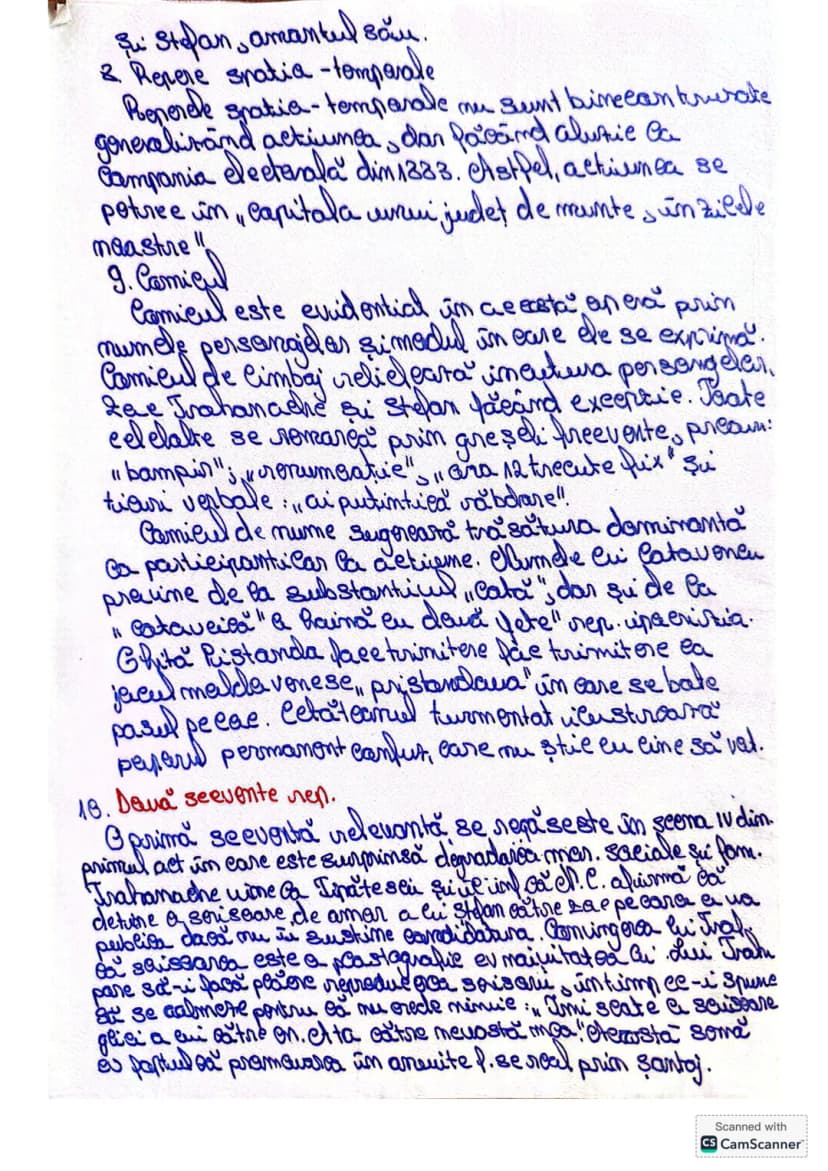 și Stefan, amantul său.
8. Repere spatia-temporale
Reperele spatia-temporale nu sunt bine conturate
generalizând actiunea, dar făcând aluzie la
Campania electorală din 1883. Astfel, actiunea se
petrece în „capitala unui județ de munte, în zilele
noastre"
9. Comicul
Comicul este evidential în aceastǎ operǎ prin
numele personajelor și modul în care ele se exprimǎ.
Comicul de limbaj reliefeazǎ incultura personajelor,
Zoe Trahanache și Stefan fǎcând exceptie. Toate
celelalte se remarcǎ prin greșeli frecvente, precum:
"bampir"; „renumeratie", „ora 12 trecute fix" și
ticuri verbale: „ai putinticǎ rǎbdare".
Comicul de nume sugereazǎ trǎsǎtura dominantǎ
a participantilor la actiune. Numele lui Catavencu
provine de la substantivul „catǎ", dar și de la
„cataveicǎ" o hainǎ cu douǎ fete" rep. ipocrizia.
Ghitǎ Pristanda face trimitere face trimitere la
jocul moldovenesc „pristandaua" în care se bate
pasul pe loc. Cetǎteanul turmentat ilustreazǎ
poporul permanent confuz, care nu știe cu cine sǎ vot.
10. Douǎ secvente rep.
O primǎ secventǎ relevantǎ se regǎseste în scena IV din
primul act în care este surprinsǎ degradarea mor. sociale și fam.
Trahanache vine la Tipǎtescu și îl inf. cǎ N.C. afirmǎ cǎ
detine o scrisoare de amor a lui Stefan cǎtre Zoe pe care o va
publica dacǎ nu îi sustine candidatura. Convingerea lui Trah.
cǎ scrisoarea este o plastografie ev naivitatea lui. Lui Trah
pare sǎ-i facǎ plǎcere reproducerea scrisorii, în timp ce-i spune
sǎ se calmeze pentru cǎ nu crede nimic: „Îmi scoate o scrisoare
a lui cǎtre on. cǎtre nevastǎ mea." Aceastǎ scenǎ
ev faptul cǎ promovarea în anumite f. se real prin șantaj.
Scanned with
CS CamScanner